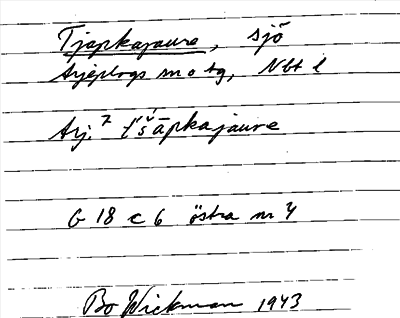 Tjapkajaure, sjö
Arjeplogs sn o tg, Nbt l
Arj. t́śāpkajaure
G 18 c 6 östra nr 4
Bo Wickman 1943